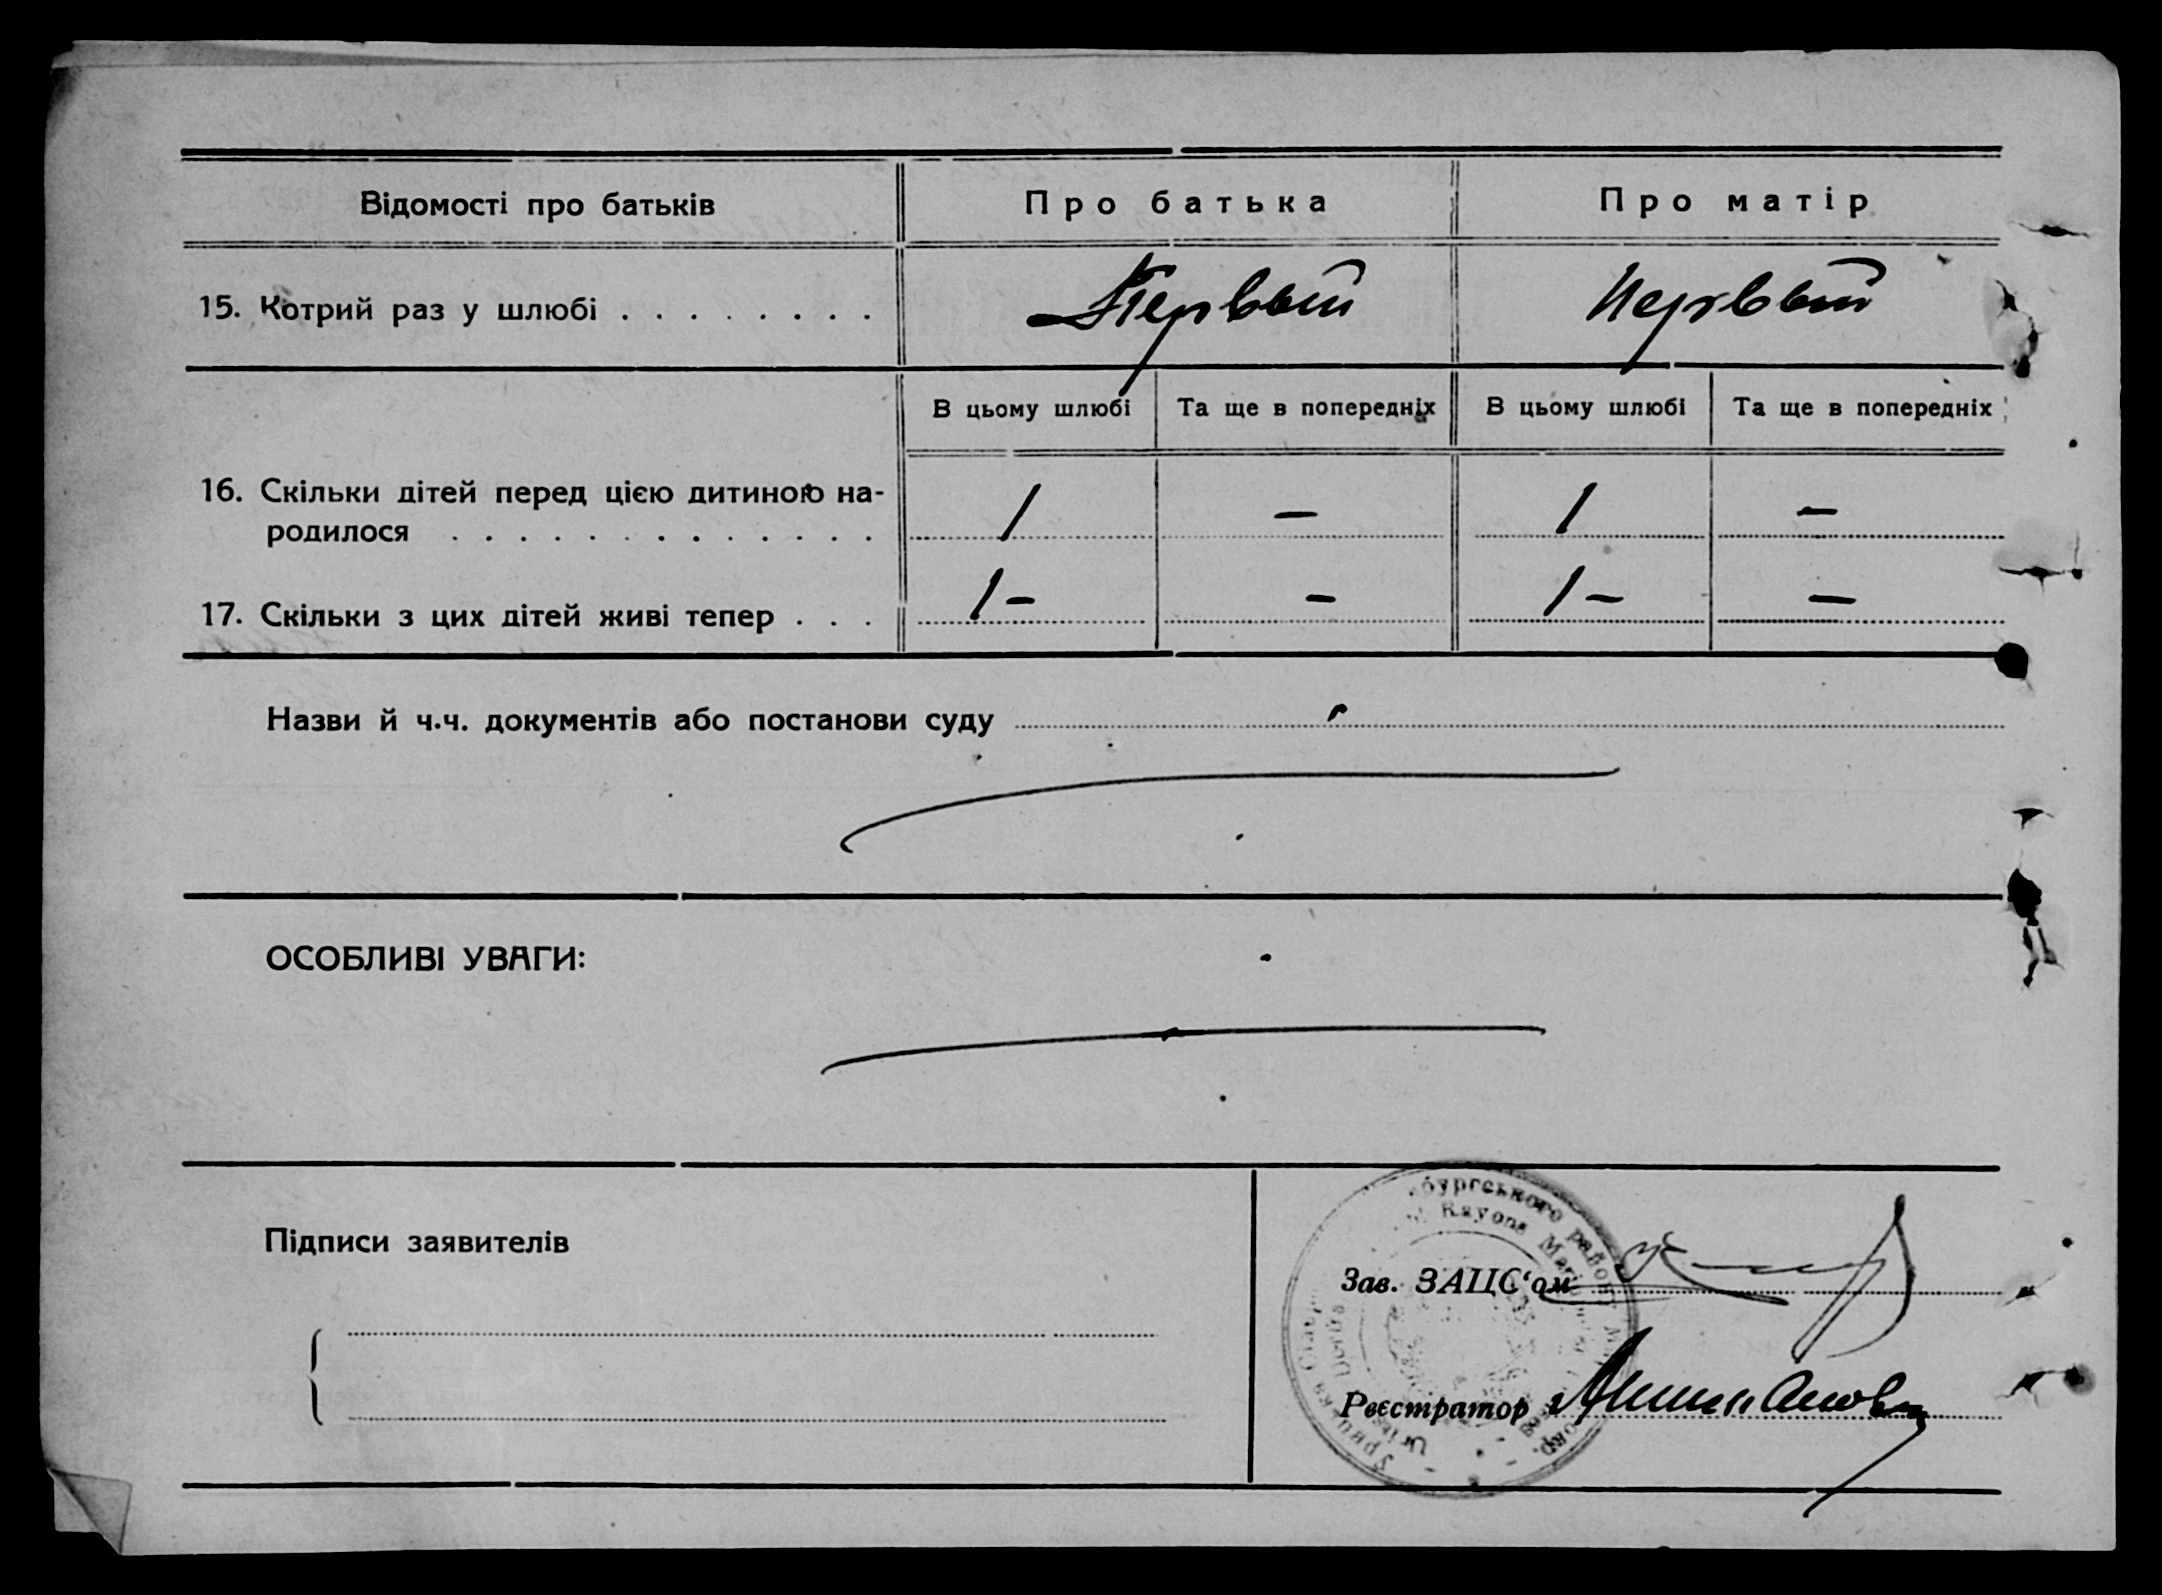 Відомості про батьків Про батька Про матір
15. Котрий раз у шлюбі . . . . . . . . Первый Первый
В цьому шлюбі Та ще в попередніх В цьому шлюбі Та ще в попередніх
16. Скільки дітей перед цією дитиною на-
родилося . . . . . . . . . . . . . 1 — 1 —
17. Скільки з цих дітей живі тепер . . . 1 — — 1 — —
Назви й ч.ч. документів або постанови суду
ОСОБЛИВІ УВАГИ:
Підписи заявителів
бургського району
Rayons
Зав. ЗАЦС‘ом
Реєстратор